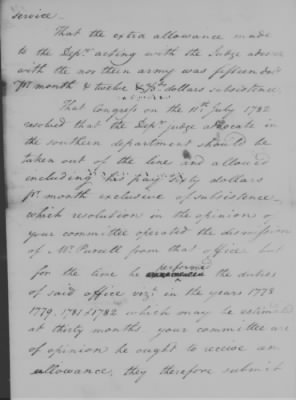 service.
That the extra allowance made
to the Depy. acting with the Judge advoce
with the northern army was fifteen dolr.
pr. month & twelve dollars subsistence.
That Congress on the 11th July 1782
resolved that the Depy. judge advocate in
the southern department should be
taken out of the line and allowed
including his pay sixty dollars
pr. month exclusive of subsistence
which resolution in the opinion of
your committee operated the dismission
of Mr. Purcell from that office but
for the time he performed the duties
of said office viz: in the years 1778
1779. 1781 & 1782 which may be estimated
at thirty months your committee are
of opinion he ought to receive an
allowance, they therefore submit